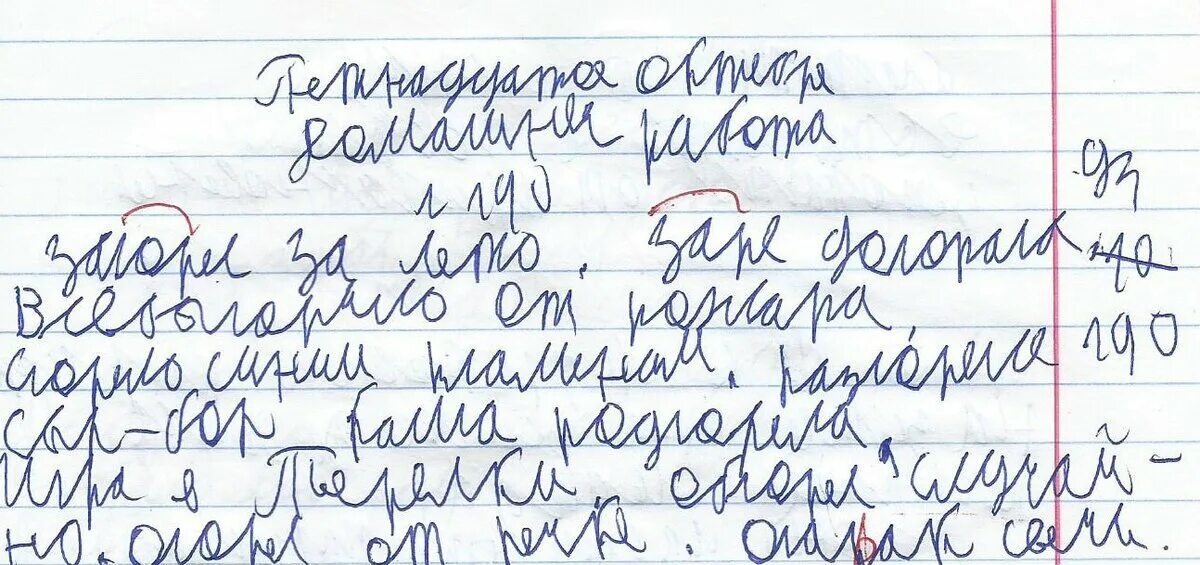 Петнадцатое октября
домашняя работа
г 190
загорел за лето. заре догорала
Всё выгорело от пожара
сгорело синим пламенем. разгорелся
сыр-бор каша подгорела.
Игра в Горелки обгорел случай-
но. огорел от речке. огарак свечи.
93
70
190